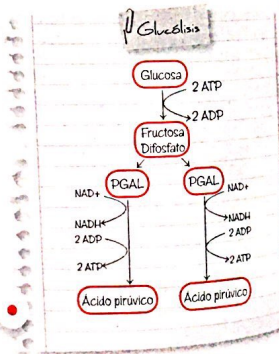 Glucólisis
Glucosa
2 ATP
2 ADP
Fructosa
Difosfato
PGAL
PGAL
NAD+
NAD+
NADH
NADH
2 ADP
2 ADP
2 ATP
2 ATP
Ácido pirúvico
Ácido pirúvico